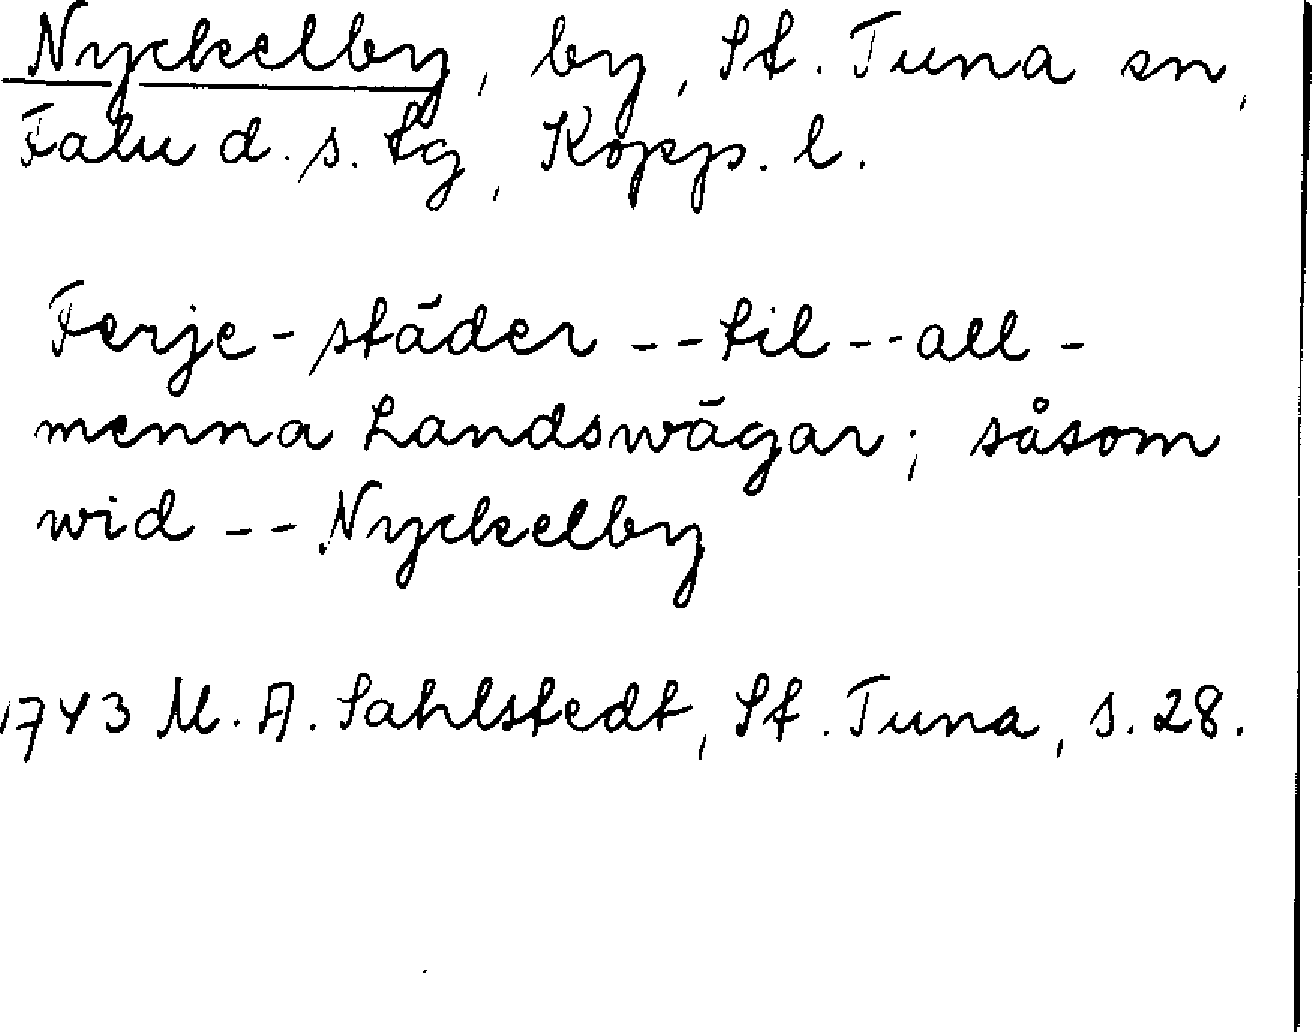 Nyckelby, by, St. Tuna sn,
Falu d. s. tg, Kopp. l.
Ferje-städer -- til -- all-
menna Landswägar; såsom
wid -- Nyckelby
1743 M. A. Sahlstedt, St. Tuna, s. 28.